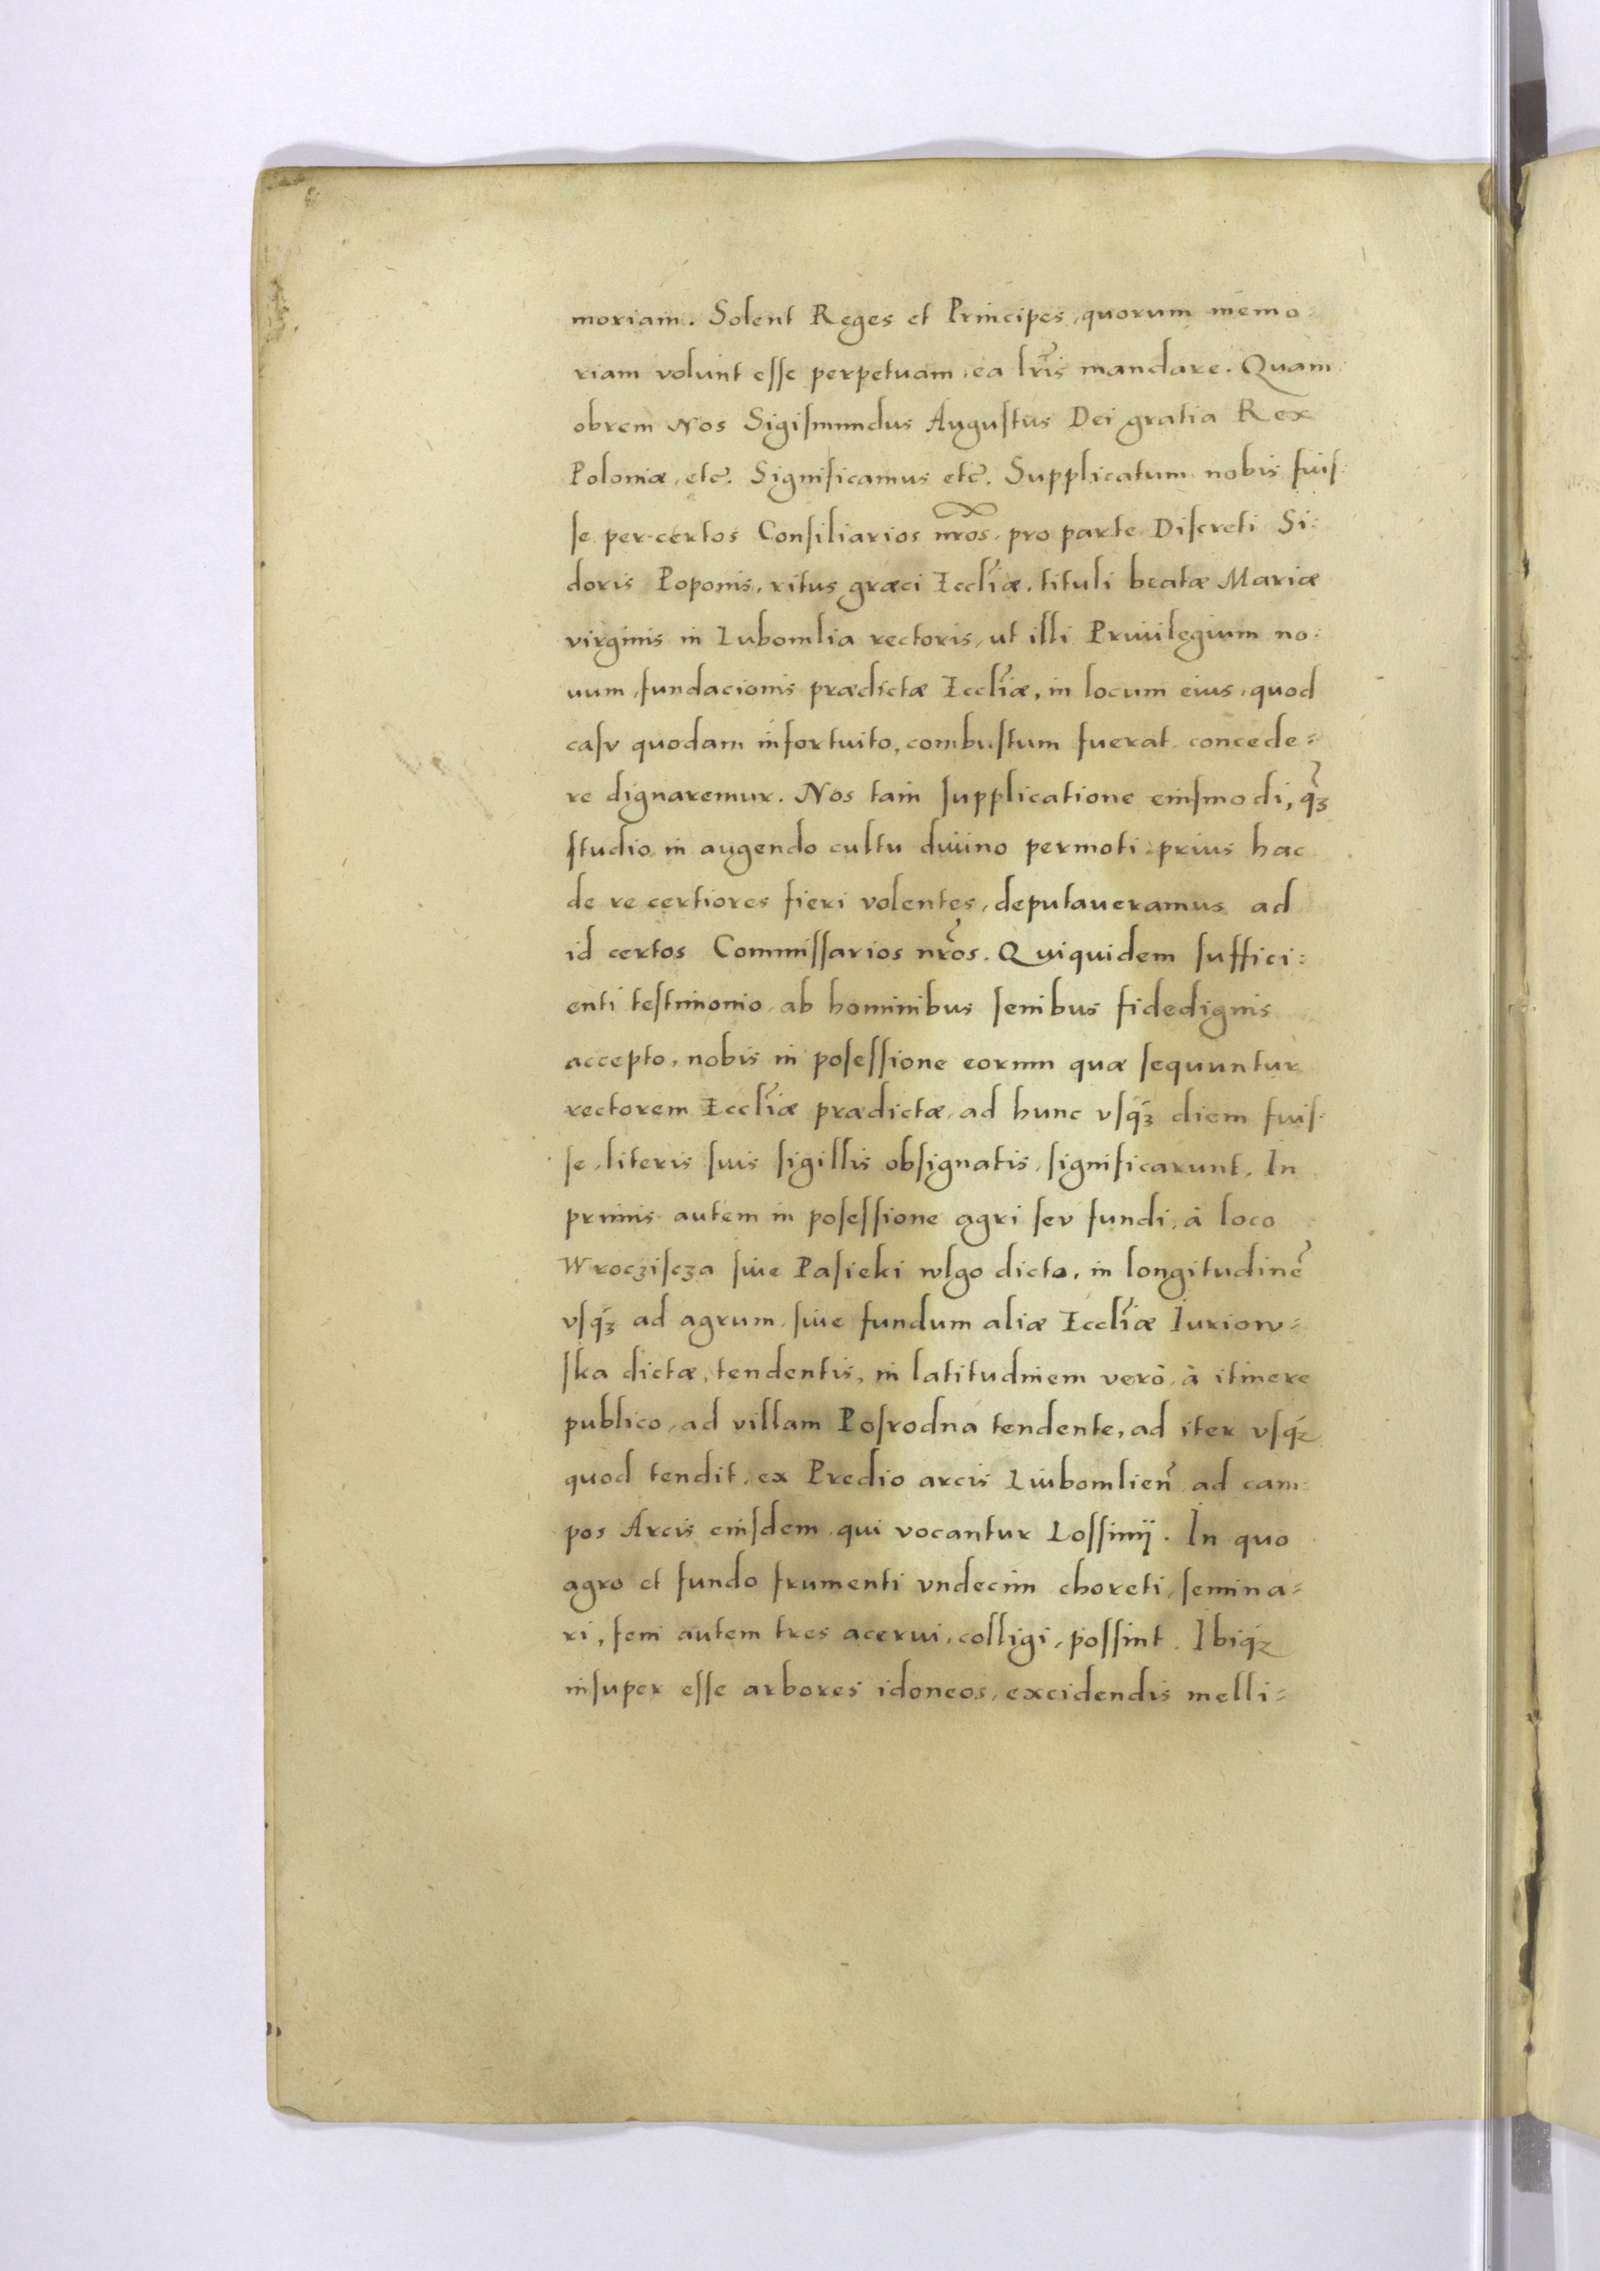 moriam. Solent Reges et Principes, quorum memo-
riam volunt esse perpetuam, ea lr̃is mandare. Quam
obrem Nos Sigiſmundus Auguſtus Dei gratia Rex
Poloniæ, etc̃. Significamus etc̃. Supplicatum nobis fuiſ-
ſe per certos Conſiliarios nr̃os, pro parte Diſcreti Si-
doris Poponis, ritus græci Eccl̃iæ, tituli beatæ Mariæ
virginis in Lubomlia rectoris, ut illi Priuilegium no-
uum, fundacionis prædictæ Eccl̃iæ, in locum eius, quod
caſv quodam infortuito, combuſtum fuerat concede=
re dignaremur. Nos tam ſupplicatione eiuſmodi, q̃ꝫ
ſtudio in augendo cultu diuino permoti, prius hac
de re certiores fieri volentes, deputaueramus ad
id certos Commiſſarios nr̃os. Quiquidem ſuffici=
enti teſtimonio, ab hominibus ſenibus fidedignis
accepto, nobis in poſeſſione eorum quæ ſequuntur
rectorem Eccl̃iæ prædictæ, ad hunc vſqꝫ diem fuiſ-
ſe, literis ſuis ſigillis obſignatis, ſignificarunt. In
primis autem in poſeſſione agri ſev fundi, à loco
Wrocziſcza ſiue Paſieki wlgo dicto, in longitudinẽ
vſqꝫ ad agrum, ſiue fundum aliæ Eccl̃iæ Iuriow=
ſka dictæ, tendentis, in latitudinem verò, à itinere
publico, ad villam Poſrodna tendente, ad iter vſqꝫ
quod tendit, ex Predio arcis Liubomlieñ ad cam-
pos Arcis eiuſdem, qui vocantur Loſſinij. In quo
agro et fundo frumenti vndecim choreti, ſemina=
ri, feni autem tres acerui, colligi, poſſint. Ibiqꝫ
inſuper eſſe arbores idoneos, excidendis melli=